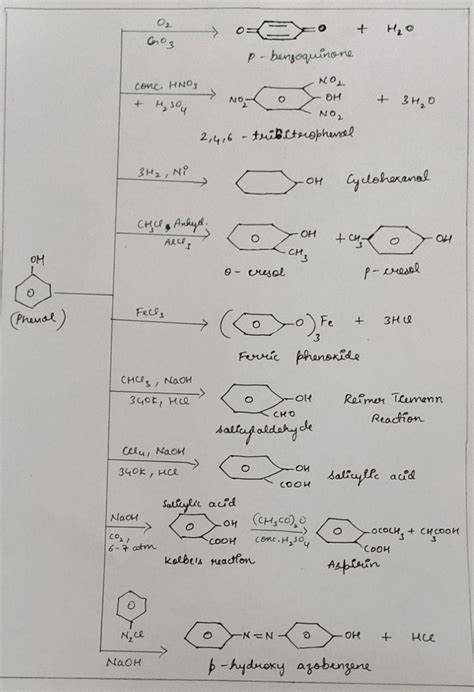 O₂
CrO₃
O= =O + H₂O
p-benzoquinone
conc. HNO₃
+ H₂SO₄
NO₂ NO₂ OH NO₂ + 3H₂O
2,4,6-trinitrophenol
3H₂, Ni
OH Cyclohexanol
CH₃Cl, Anhyd.
AlCl₃
OH CH₃ + CH₃ OH
o-cresol p-cresol
OH
(Phenol)
FeCl₃
( O )₃ Fe + 3HCl
Ferric phenoxide
CHCl₃, NaOH
340K, HCl
OH CHO
Salicylaldehyde
Reimer Tiemann
Reaction
CCl₄, NaOH
340K, HCl
OH COOH Salicyllic acid
NaOH
CO₂,
6-7 atm
Salicylic acid
OH COOH
Kolbe's reaction
(CH₃CO)₂O
conc. H₂SO₄
OCOCH₃ + CH₃COOH
COOH
Aspirin
N₂Cl
NaOH
N=N OH + HCl
p-hydroxy azobenzene